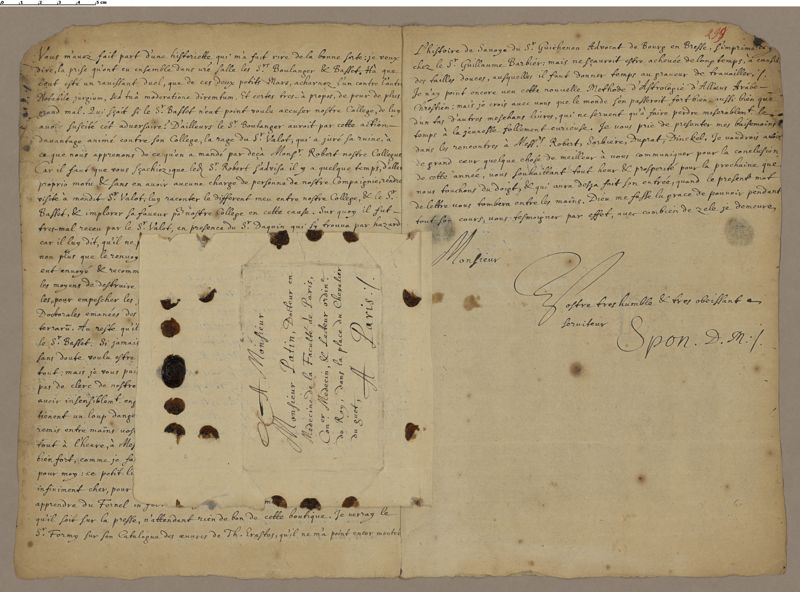 Vous m'avez fait part d'une historiette, qui m'a fait rire de la bonne sorte: je veux
dire, la prise qu'ont eu ensemble dans une salle les Srs Boulanger & Basset.
c'est estre un ravissant duel, que de ces deux petits Mars, acharnez l'un contre l'autre
Notabile jurgium, sed tua moderatione diremtum. Et certes tres-à propos, de peur de plus
grand mal. Qui sçait si le Sr. Basset n'eut point voulu accuser nostre College, de luy
avoir suscité cet adversaire? D'ailleurs le Sr. Boulanger auroit par cette action
davantage animé contre son College, la rage du Sr. Valot, qui a juré sa ruine, à
ce que nous apprenons de ce qu'en a mandé par deçà Monsr. Robert nostre Collegue
Car il faut que vous sçachiez, que led. Sr. Robert s'advisa il y a quelque temps, d'aller
proprio motu, & sans en avoir aucune charge de personne de nostre Compagnie, rendre
visite à mondit Sr. Valot, luy raconter le different meu entre nostre College, & le Sr.
Basset, & implorer sa faveur pour nostre College en cette cause. Sur quoy il fut
tres-mal receu par le Sr. Valot, en presence du Sr. Daquin qui s'y trouva par hazard
car il luy dit, qu'il ne
non plus que le renvoy
eut envoyé & recomm
les moyens de destruire
les, pour empescher les
Doctorales emanées des
terrarum. Au reste qu'il
le Sr. Basset. Si jamais
sans doute voulu estre
tout: mais je vous
pas de clerc de nostre
avoir insensiblement
tienent un loup dange
remis entre mains vos
tout à l'heure, à Me
bien fort, comme je fa
pour moy: ce petit li
infiniment cher, pour
apprendre du Fernel in
qu'il soit sur la presse, n'attendant rien de bon de cette boutique. Je verray le
Sr. Formy sur son Catalogue des œuvres de Th. Erastus, qu'il ne m'a point encor montré
A Monsieur
Monsieur Patin, Docteur en
Medecine de la Faculté de Paris,
Coner Medecin, & Lecteur ordin.
du Roy, dans la place du Chevalier
du guet,
A Paris:/.
299
L'histoire de Savoye du Sr. Guichenon Advocat de Bourg en Bresse, s'imprime icy
chez le Sr. Guillaume Barbier: mais ne sçauroit estre achevée de long temps, à cause
des tailles douces, ausquelles il faut donner temps au graveur de travailler:/.
Je n'ay point encor veu cette nouvelle Methode d'Astrologie d'Allæus Arabe-
Chrestien: mais je crois avec vous que le monde s'en passeroit fort bien, aussi bien que
d'un tas d'autres meschans livres, qui ne servent qu'à faire perdre miserablement le
temps à la jeunesse follement curieuse. Je vous prie de presenter mes baisemains
dans les rencontres à Messrs. Robert, Sorbiere, Duprat, Dinckel. Je voudrois avoir
de grand cœur quelque chose de meilleur à vous communiquer pour la conclusion
de cette année, vous souhaittant tout heur & prosperité pour la prochaine que
nous touchons du doigt, & qui aura desja fait son entrée, quand le present mot
de lettre vous tombera entre les mains. Dieu me fasse la grace de pouvoir pendant
tout son cours, vous tesmoigner par effet, avec combien de zele je demeure,
Monsieur
Vostre tres humble & tres obeissant
serviteur
Spon. D. M:/.